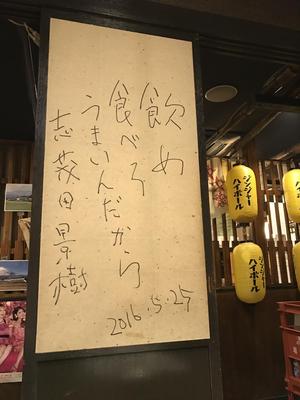 飲め
食べろ
うまいんだから
志茂田景樹
2016.5.25
ジンジャー
ハイボール
ジンジャー
ハイボール